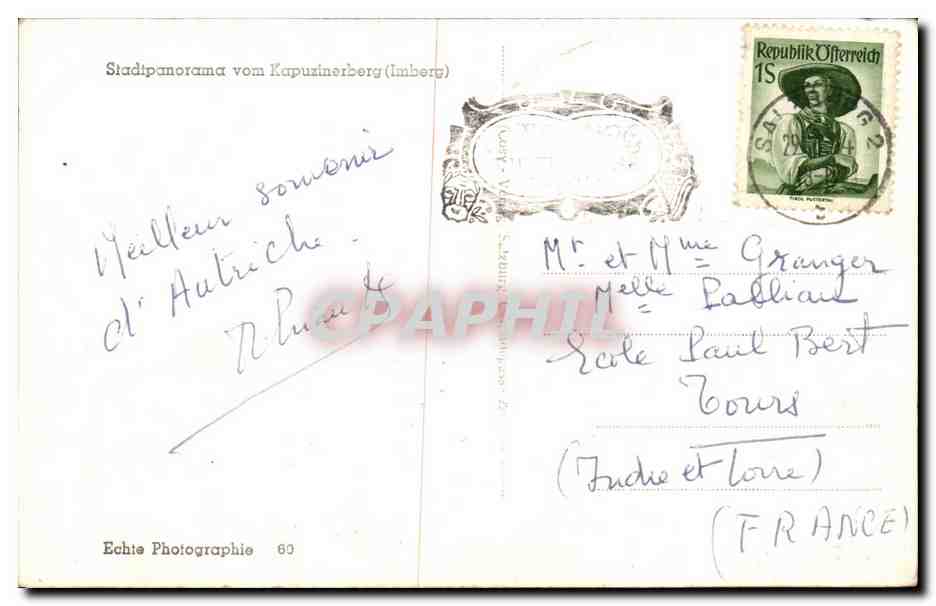 Stadtpanorama vom Kapuzinerberg (Imberg)
Meilleur souvenir
d'Autriche.
Echte Photographie 60
Republik Österreich
1S
TIROL PUSTERTAL
Mr et Mme Granger
Melle
Ecole Paul Bert
Tours
(Indre et Loire)
(FRANCE)
CPAPHIL